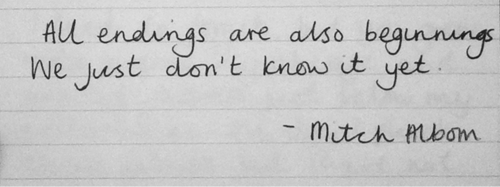 All endings are also beginnings
We just don't know it yet.
- Mitch Albom